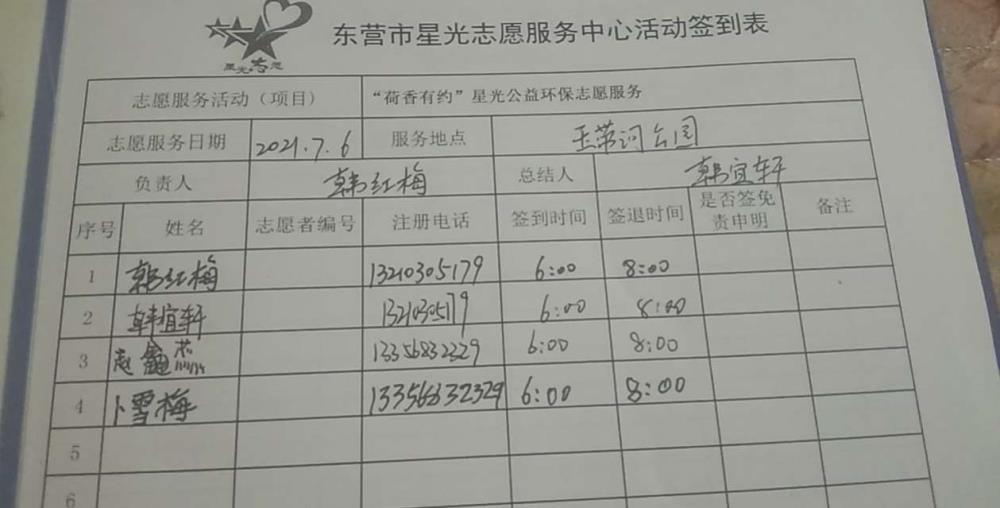 星光志愿
东营市星光志愿服务中心活动签到表
志愿服务活动（项目） “荷香有约”星光公益环保志愿服务
志愿服务日期 2021.7.6 服务地点 玉带河公园
负责人 韩红梅 总结人 韩宜轩
序号 姓名 志愿者编号 注册电话 签到时间 签退时间 是否签免责申明 备注
1 韩红梅 13210305179 6:00 8:00
2 韩宜轩 13210305179 6:00 8:00
3 赵鑫杰 13356832329 6:00 8:00
4 卜雪梅 13356832329 6:00 8:00
5
6